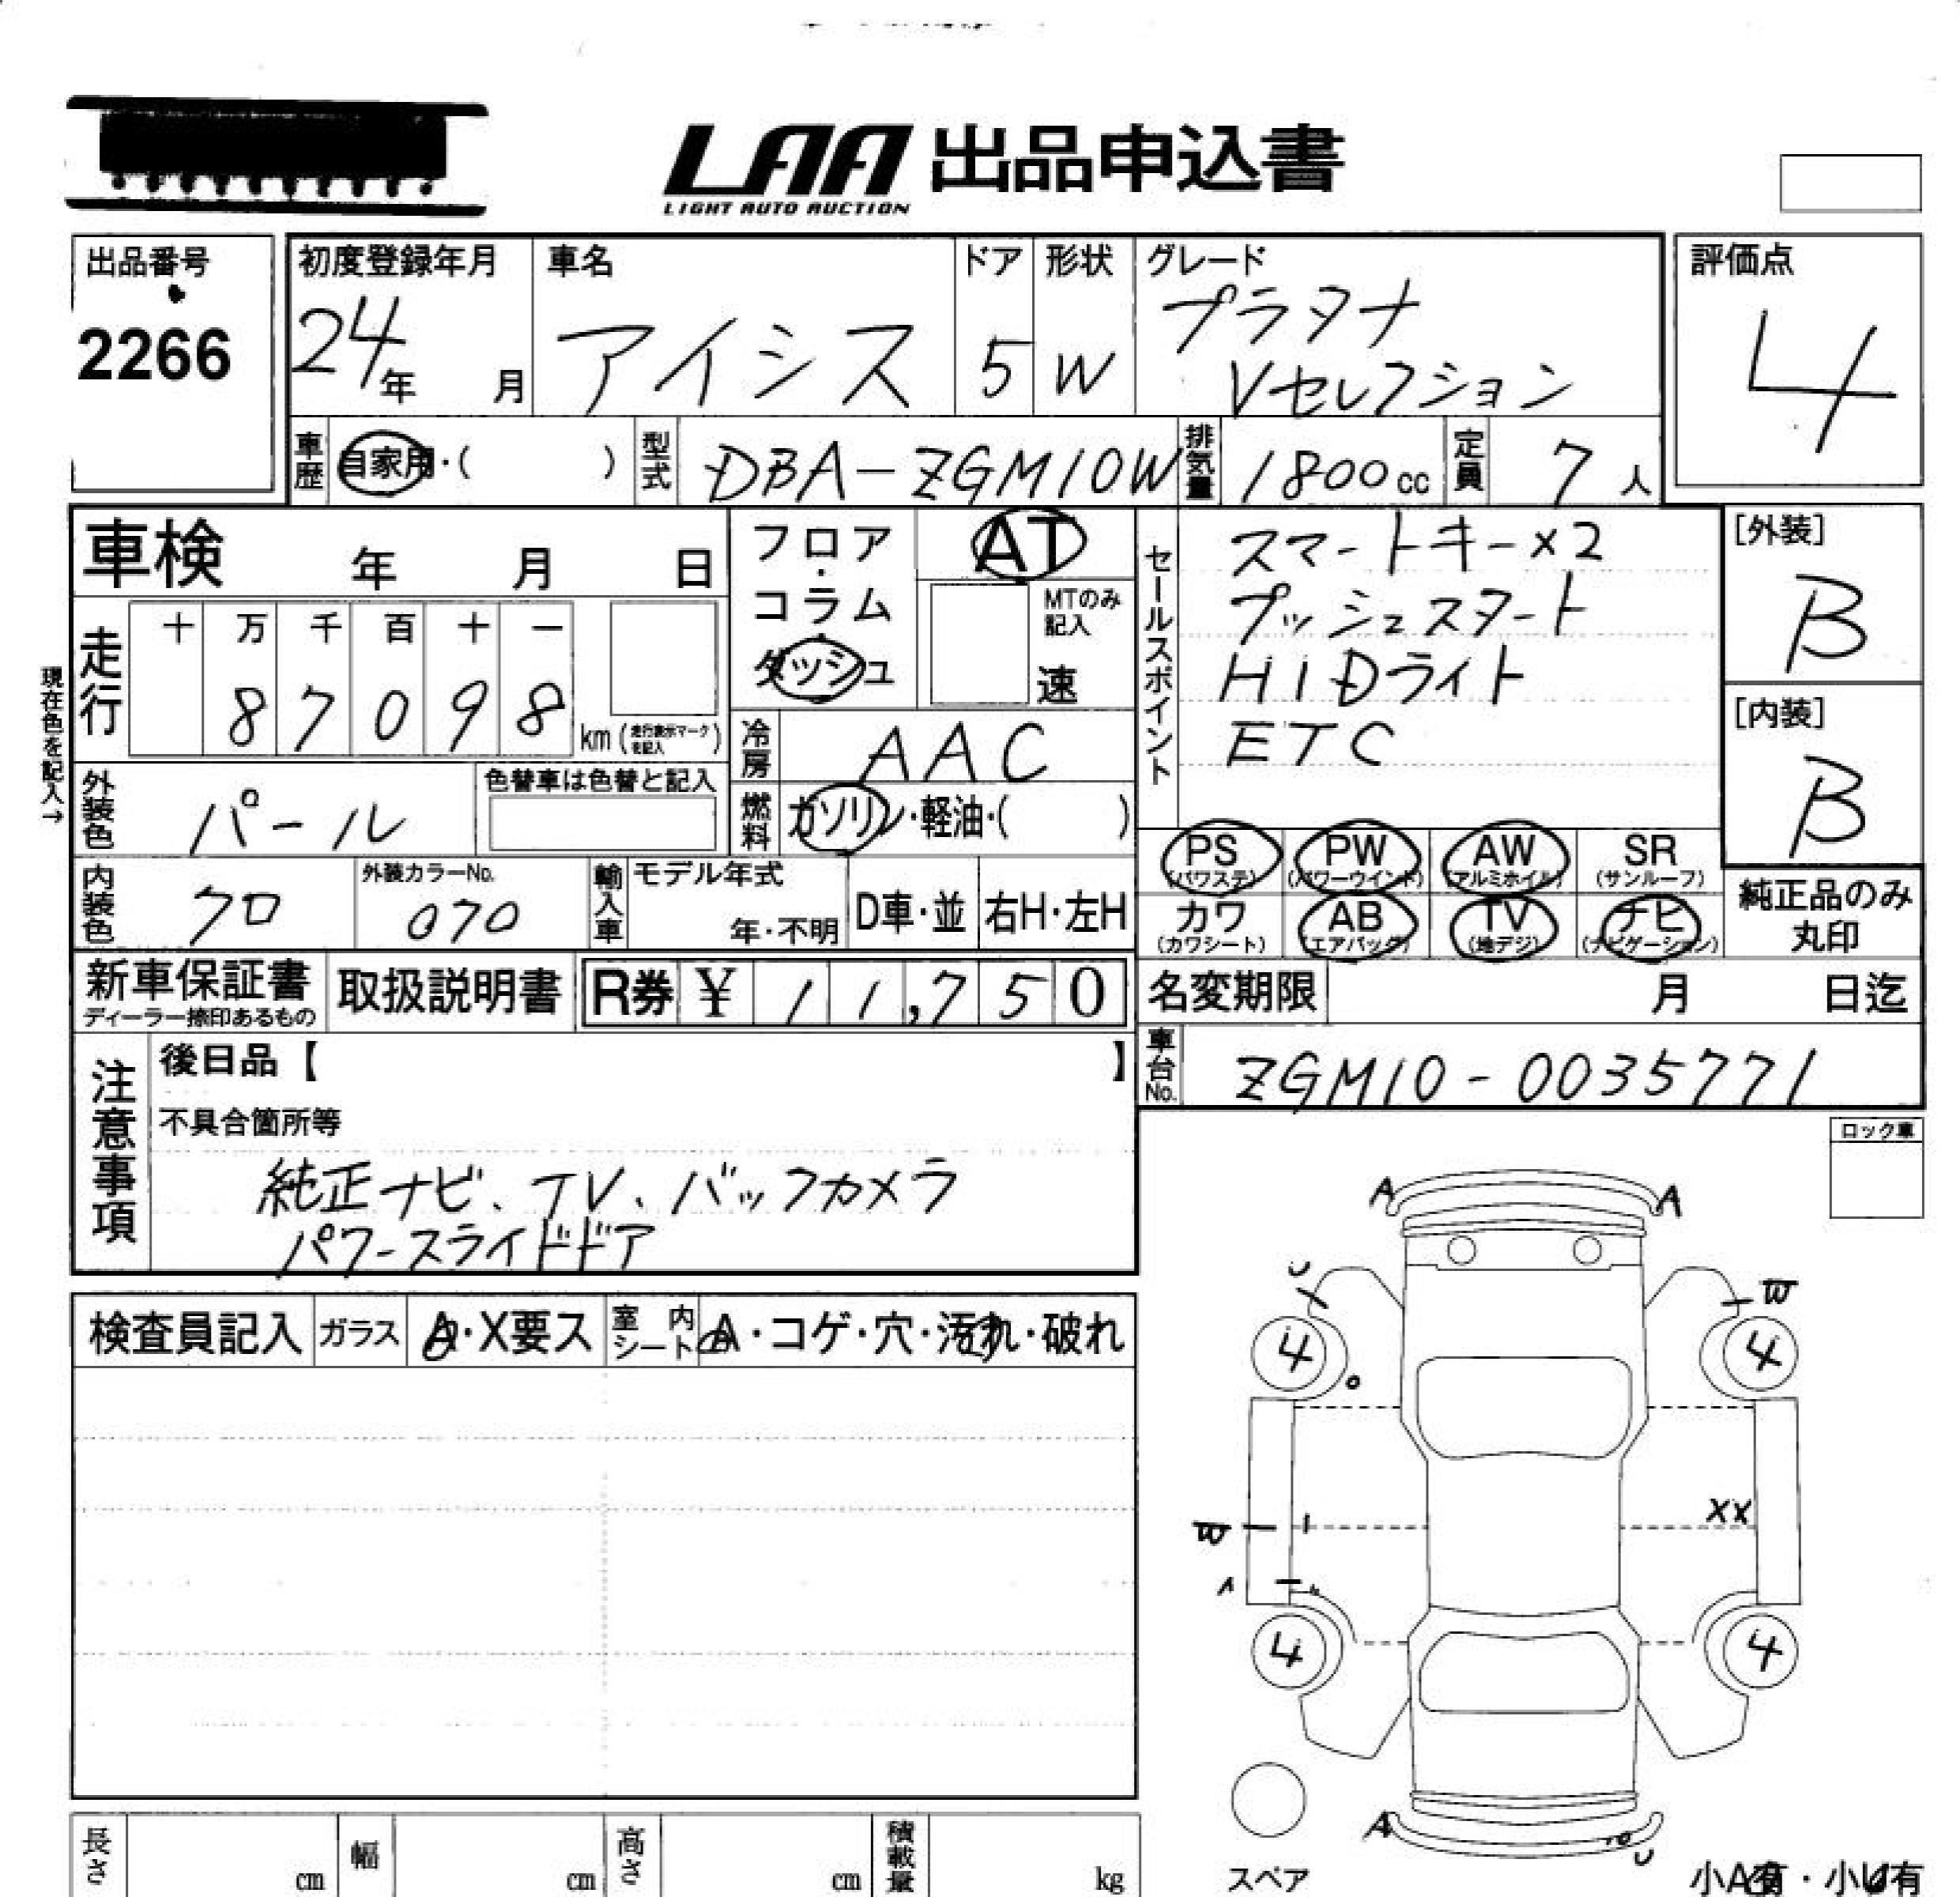 LAA 出品申込書
LIGHT AUTO AUCTION
出品番号
2266
初度登録年月
24年 月
車名
アイシス
ドア
5
形状
W
グレード
プラタナ
Vセレクション
評価点
4
車歴 自家用・( )
型式 DBA-ZGM10W
排気量 1800cc
定員 7人
車検 年 月 日
走行
十 万 千 百 十 一
8 7 0 9 8
km (走行表示マークを記入)
現在色を記入→
外装色 パール
色替車は色替と記入
内装色 クロ
外装カラーNo.
070
フロア・コラム・ダッシュ
AT
MTのみ記入
速
冷房 AAC
燃料 ガソリン・軽油・( )
輸入車
モデル年式
年・不明
D車・並
右H・左H
セールスポイント
スマートキー×2
プッシュスタート
HIDライト
ETC
[外装]
B
[内装]
B
PS (パワステ)
PW (パワーウインド)
AW (アルミホイル)
SR (サンルーフ)
カワ (カワシート)
AB (エアバッグ)
TV (地デジ)
ナビ (ナビゲーション)
純正品のみ
丸印
新車保証書
ディーラー捺印あるもの
取扱説明書
R券 ¥ 11,750
名変期限 月 日迄
車台No. ZGM10-0035771
注意事項
後日品【 】
不具合箇所等
純正ナビ、TV、バックカメラ
パワースライドドア
ロック車
検査員記入
ガラス A・X要ス
室内シート A・コゲ・穴・汚れ・破れ
A A
U W
4 4
W XX
A
4 4
A U
スペア
小A有・小U有
長さ cm
幅 cm
高さ cm
積載量 kg